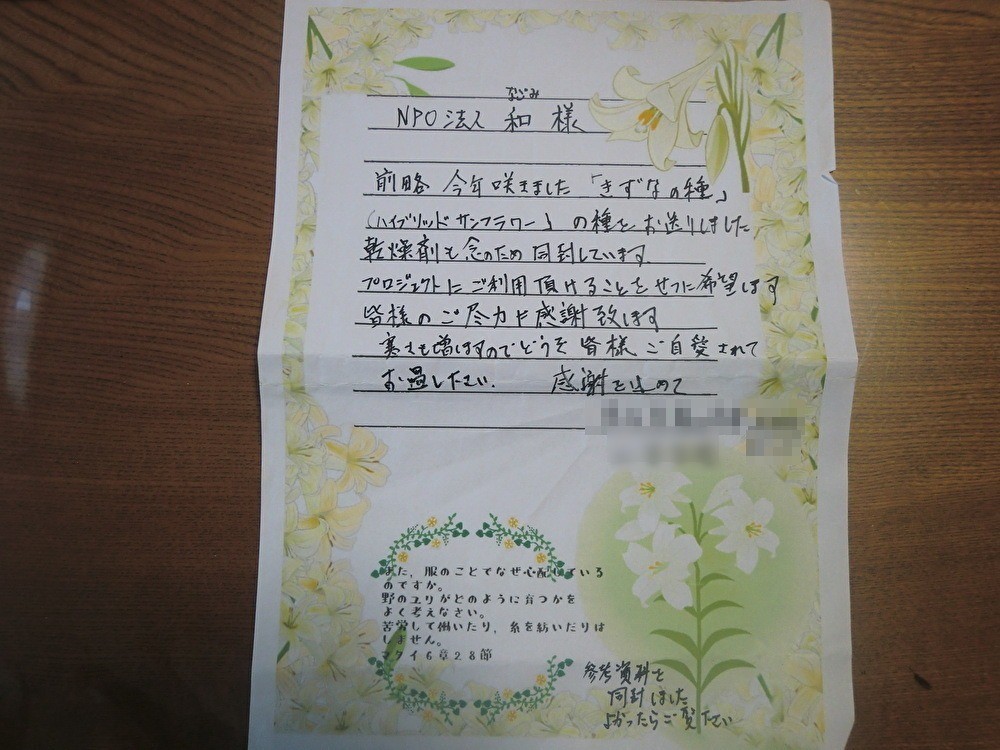 なごみ
NPO法人 和 様
前略 今年咲きました「きずなの種」
(ハイブリッドサンフラワー)の種をお送りしました
乾燥剤も念のため同封しています。
プロジェクトにご利用頂けることをせつに希望します
皆様のご尽力に感謝致します
寒さも増しますのでどうぞ皆様ご自愛されて
お過しください. 感謝を込めて
また、服のことでなぜ心配している 
のですか。
野のユリがどのように育つかを
よく考えなさい。
苦労して働いたり、糸を紡いだりは
しません。
マタイ6章28節
参考資料を
同封しました
よかったらご覧下さい